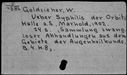 Goldzieher, W.
Ueber Syphilis der Orbita
Halle a.S., Marhold, 1902.
24 s. (Sammlung zwang-
loser Abhandlungen aus dem
Gebiete der Augenheilkunde,